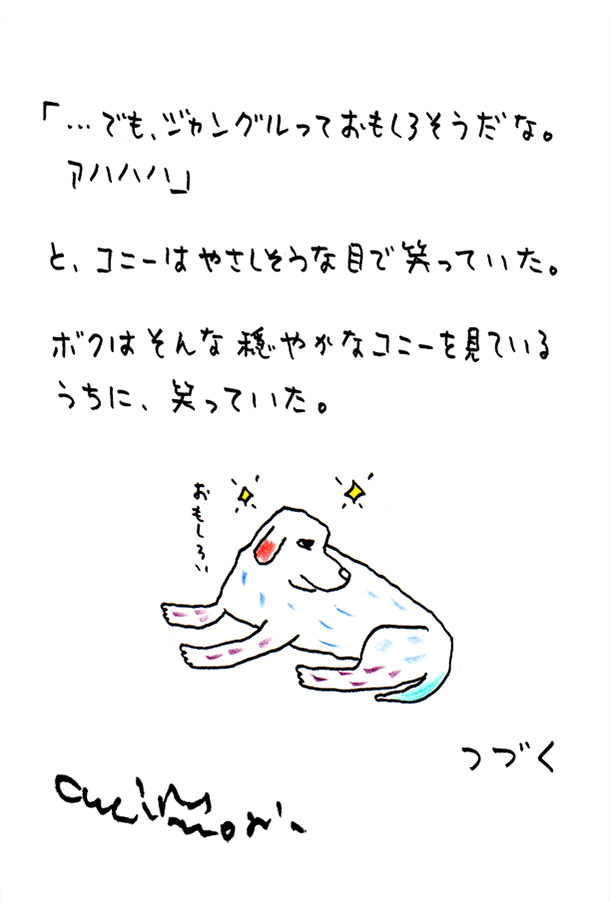 「…でも、ジャングルっておもしろそうだな。
アハハハ」
と、コニーはやさしそうな目で笑っていた。
ボクはそんな穏やかなコニーを見ている
うちに、笑っていた。
おもしろい
つづく